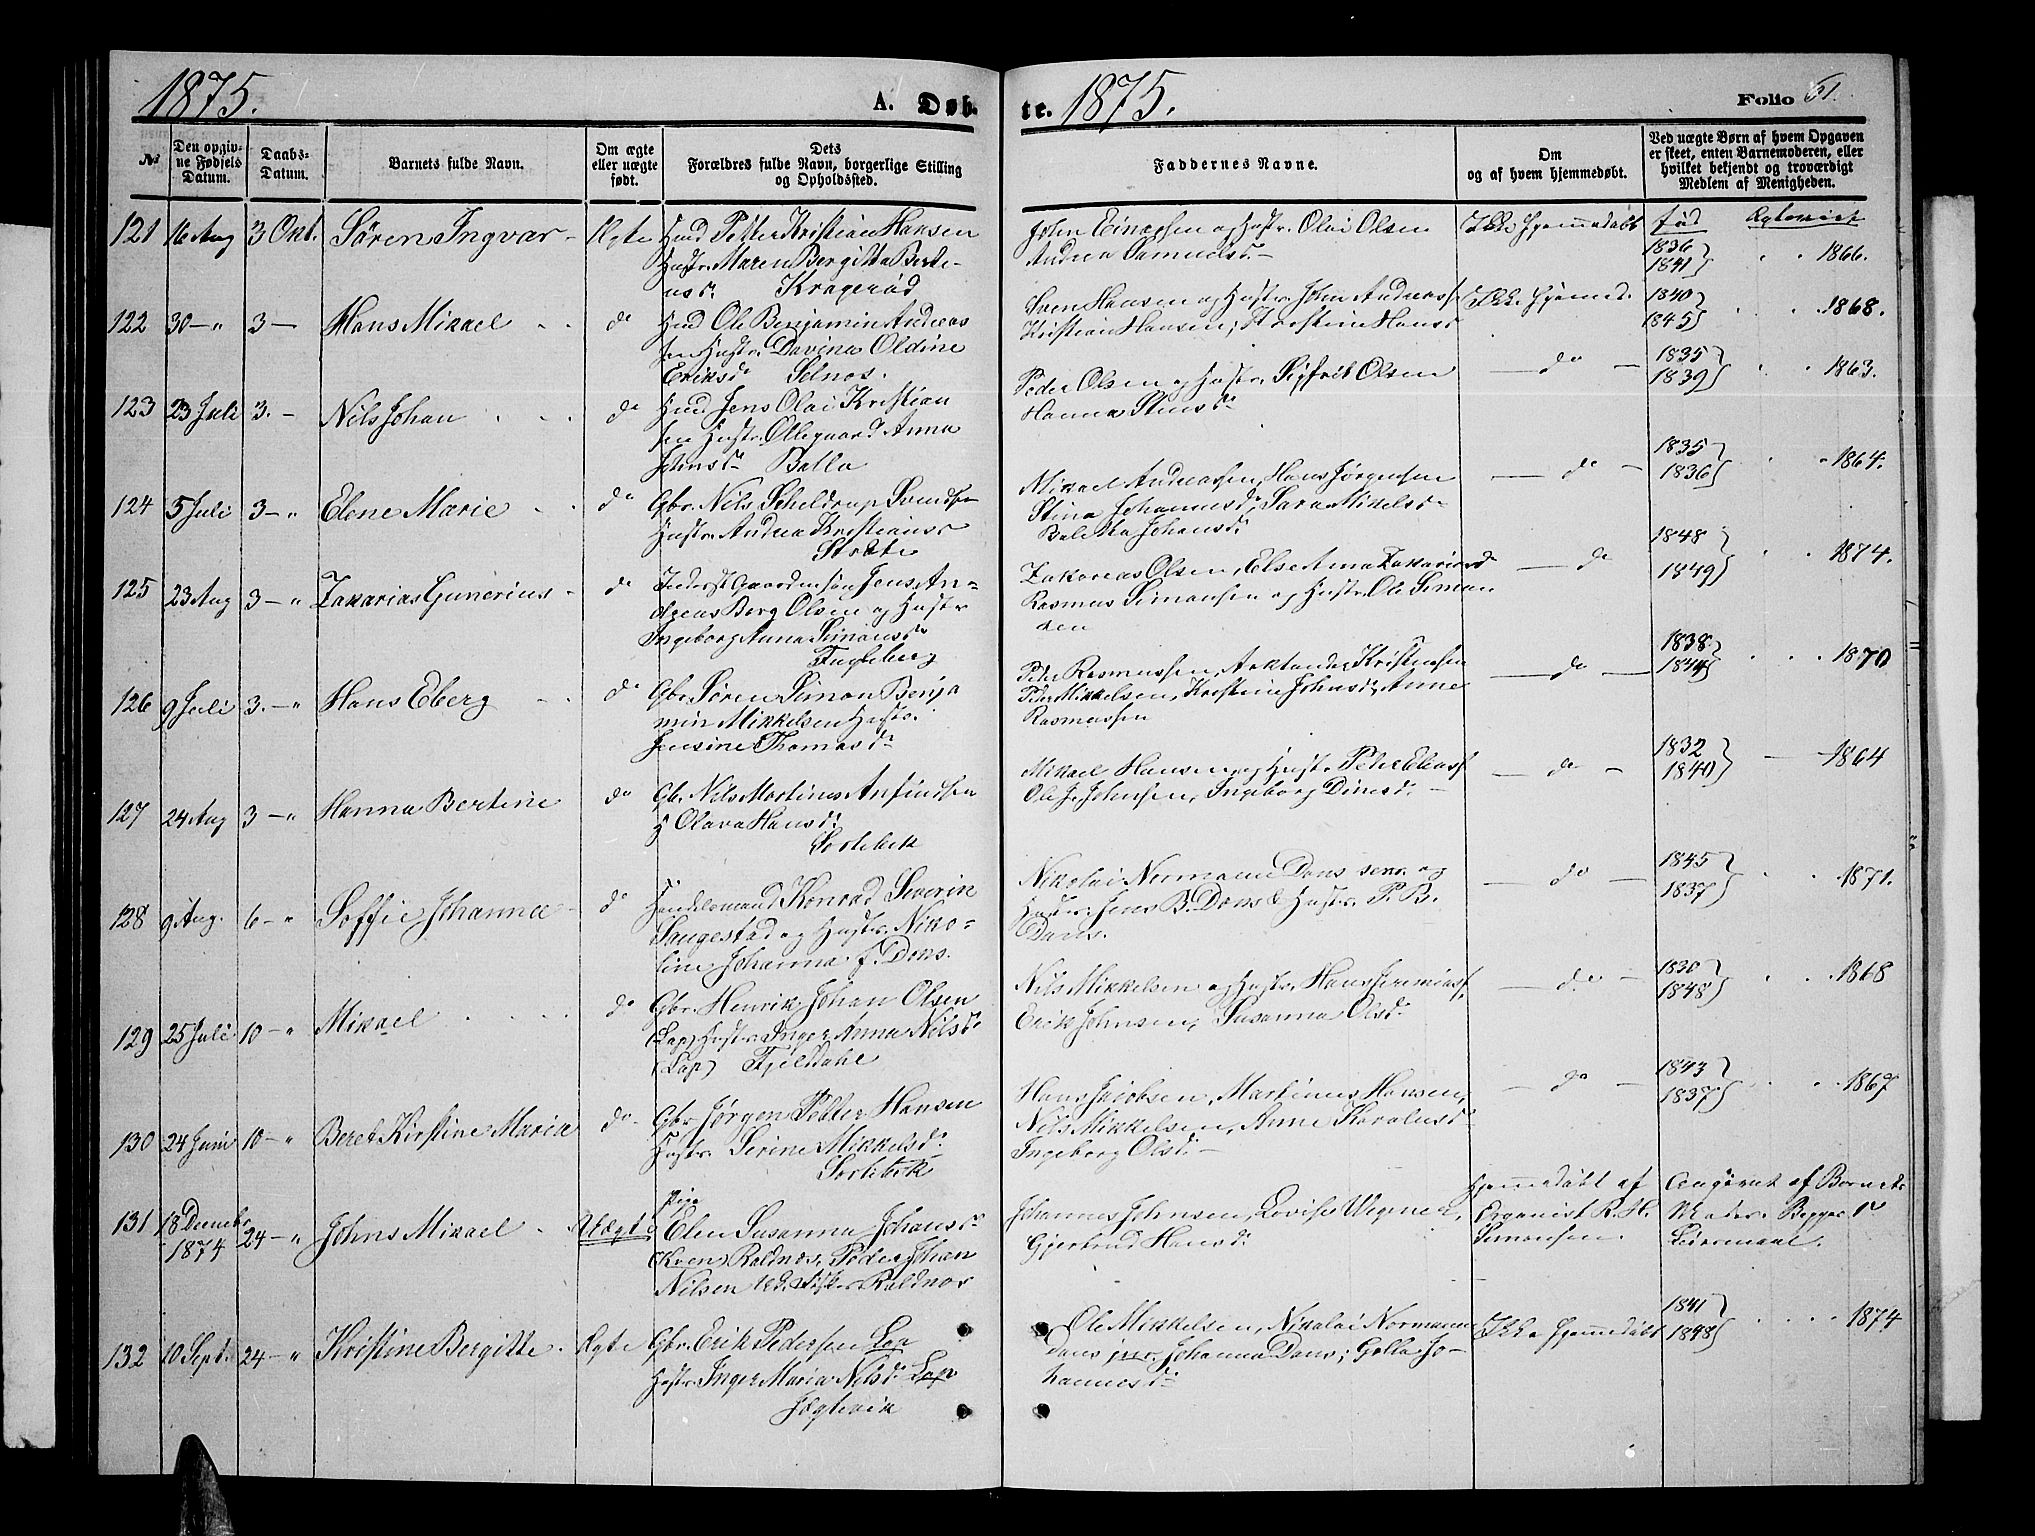 1875.
A. Døb-
te. 1875.
Folio 61.
№
Den opgiv-
ne Fødsels
Datum.
Daabs-
Datum.
Barnets fulde Navn.
Om ægte
eller uægte
født.
Dets
Forældres fulde Navn, borgerlige Stilling
og Opholdssted.
Faddernes Navne.
Om
og af hvem hjemmedøbt.
Ved uægte Børn af hvem Opgaven
er skeet, enten Barnemoderen, eller
hvilket bekjendt og troværdigt
Medlem af Menigheden.
født
121 16 Aug 3 Okt. Søren Ingvar Ægte Husd Petter Kristian Hansen
Hustr. Maren Bergitta Bernt-
usd. Kragerød
John Einarsen og Hustr. Olai Olsen
Andrea Samuelsd.
Ikke Hjemmedøbt
1836
1841 " " 1866.
122 30 — " 3 — Hans Mikael do Husd Ole Benjamin Andreas
sen Hustr. Davina Oldine
Eriksd Selnes.
Sven Hansen og Hustr. John Andreass.
Kristian Hansen, Kristine Hansd
Ikke Hjemmed.
1840
1845 " " 1868.
123 23 Juli 3. — Nils Johan do Husd Jens Olai Kristian
sen Hustr. Ollegaard Anna
Johnsd. Balla
Peder Olsen og Hustr. Sigfrid Olsen
Hanna Stinsd.
— do —
1835
1839 " " 1863.
124 5 Juli 3 — " Elene Marie do Gbr. Nils Scheldrup Svendsen
Hustr. Andrea Kristiansd
Strete
Mikael Andreassen, Hans Jørgensen
Stina Johannesd, Sara Mikelsd.
Baletta Johansd.
— do —
1835
1836 " " 1864.
125 23 Aug 3 — " Zakarias Gunerius do Inderst Gaardmsøn Jens An-
dreas Berg Olsen og Hustr
Ingeborg Anna Simonsd.
Fugleberg
Zakarias Olsen, Else Anna Zakariasd
Rasmus Simonsen og Hustr. Ole Simon
sen
— do
1848
1849 " " 1874.
126 9 Juli 3. — " Hans Eberg do Gbr Søren Simon Benja
min Mikkelsen Hustr.
Jensine Thomasd.
Peder Rasmussen, Kristensen
Peder Mikkelsen, Kristine Johnsd, Anne
Rasmussen
— do —
1838
1844 " " 1870
127 24 Aug 3 — " Hanna Bertine do Gbr. Nils Martinus Anfindsen
H Olava Hansd.
Sørlibek
Mikael Hansen og Hustr. Peder Eliass
Ole J. Johnsen, Ingeborg Dinesd.
— do —
1832
1840 — 1864
128 9 Aug. 6 — " Soffie Johanna do Handelsmand Konrad Severin
Saugestad og Hustr. Niko-
line Johanna f. Dons.
Nikolai Normann Dons senr. og
Hustr. Jens B. Dons & Hustr. P. B.
Dons.
— do —
1845
1837 " " 1871.
129 25 Juli 10 — " Mikael do Gbr. Henrik Johan Olsen
(Lap) Hustr. Inger Anna Nilsd.
(Lap) Fjeldahl
Nils Mikkelsen og Hustr. Hans Jeremiass.
Erik Johnsen, Susanna Olsd.
— do —
1830
1848 " " 1868
130 24 Juni 10 — " Beret Kirstine Maria do Gbr Jørgen Petter Hansen
Hustr. Serine Mikkelsd.
Sørlibek
Hans Jacobsen, Martinus Hansen,
Nils Mikkelsen, Anne Karolusd
Ingeborg Olsd.
— do —
1843
1837 " " 1867
131 18 Decembr 1874 24 — " Johns Mikael Uægte Pige
Elen Susanna Johansd.
(Kven) Roldnes, Peder Johan
Nilsen Fisker Roldnes
Johannes Johnsen, Lovise Wegner,
Gjertrud Hansd.
Hjemmedøbt af
Organist R. H.
Simonsen.
Angivet af Barnets
Moder. Begges 1ste
Leiermaal.
132 10 Sept. 24 — " Kristine Bergitte Ægte Gbr. Erik Pedersen Lap
Hustr. Inger Maria Nilsd. Lap
Jægtevik
Ole Mikkelsen, Nikolai Normann
Dons jnr. Johanna Dons; Golla Jo-
hannesd.
Ikke Hjemmedøbt
1841
1848 " " 1874